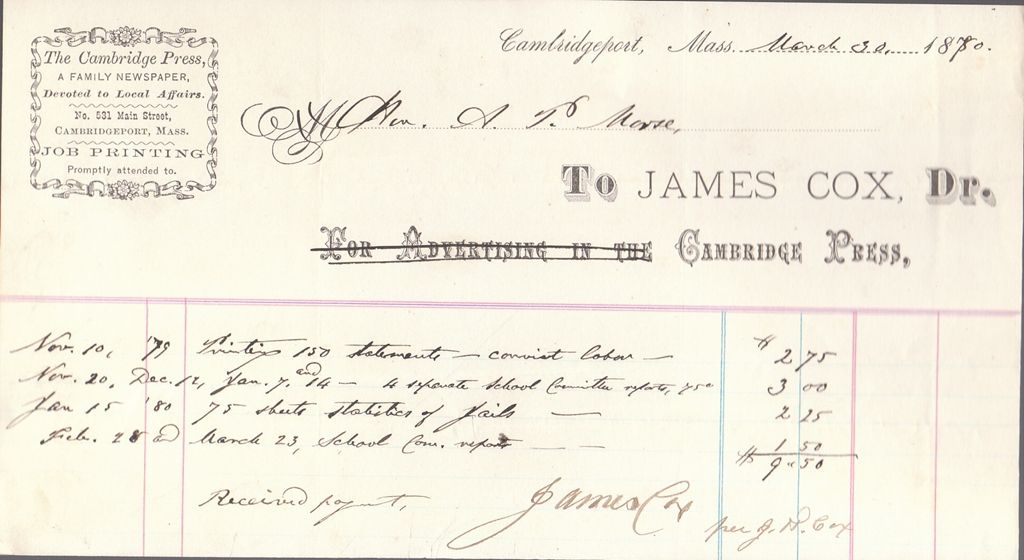 The Cambridge Press,
A FAMILY NEWSPAPER,
Devoted to Local Affairs.
No. 531 Main Street,
CAMBRIDGEPORT, MASS.
JOB PRINTING
Promptly attended to.
Cambridgeport, Mass. March 30, 1880.
M Hon. A. P. Morse,
To JAMES COX, Dr.
FOR ADVERTISING IN THE CAMBRIDGE PRESS,
Nov. 10, '79 Printing 150 statements — convict labor — $ 2 75
Nov. 20, Dec. 12, Jan. 7, and 14 — 4 separate School Committee reports, 75c 3 00
Jan 15 '80 75 sheets statistics of jails — 2 25
Feb. 28 and March 23, School Com. reports — — 1 50
$ 9.50
Received payment,
James Cox
per J. H. Cox